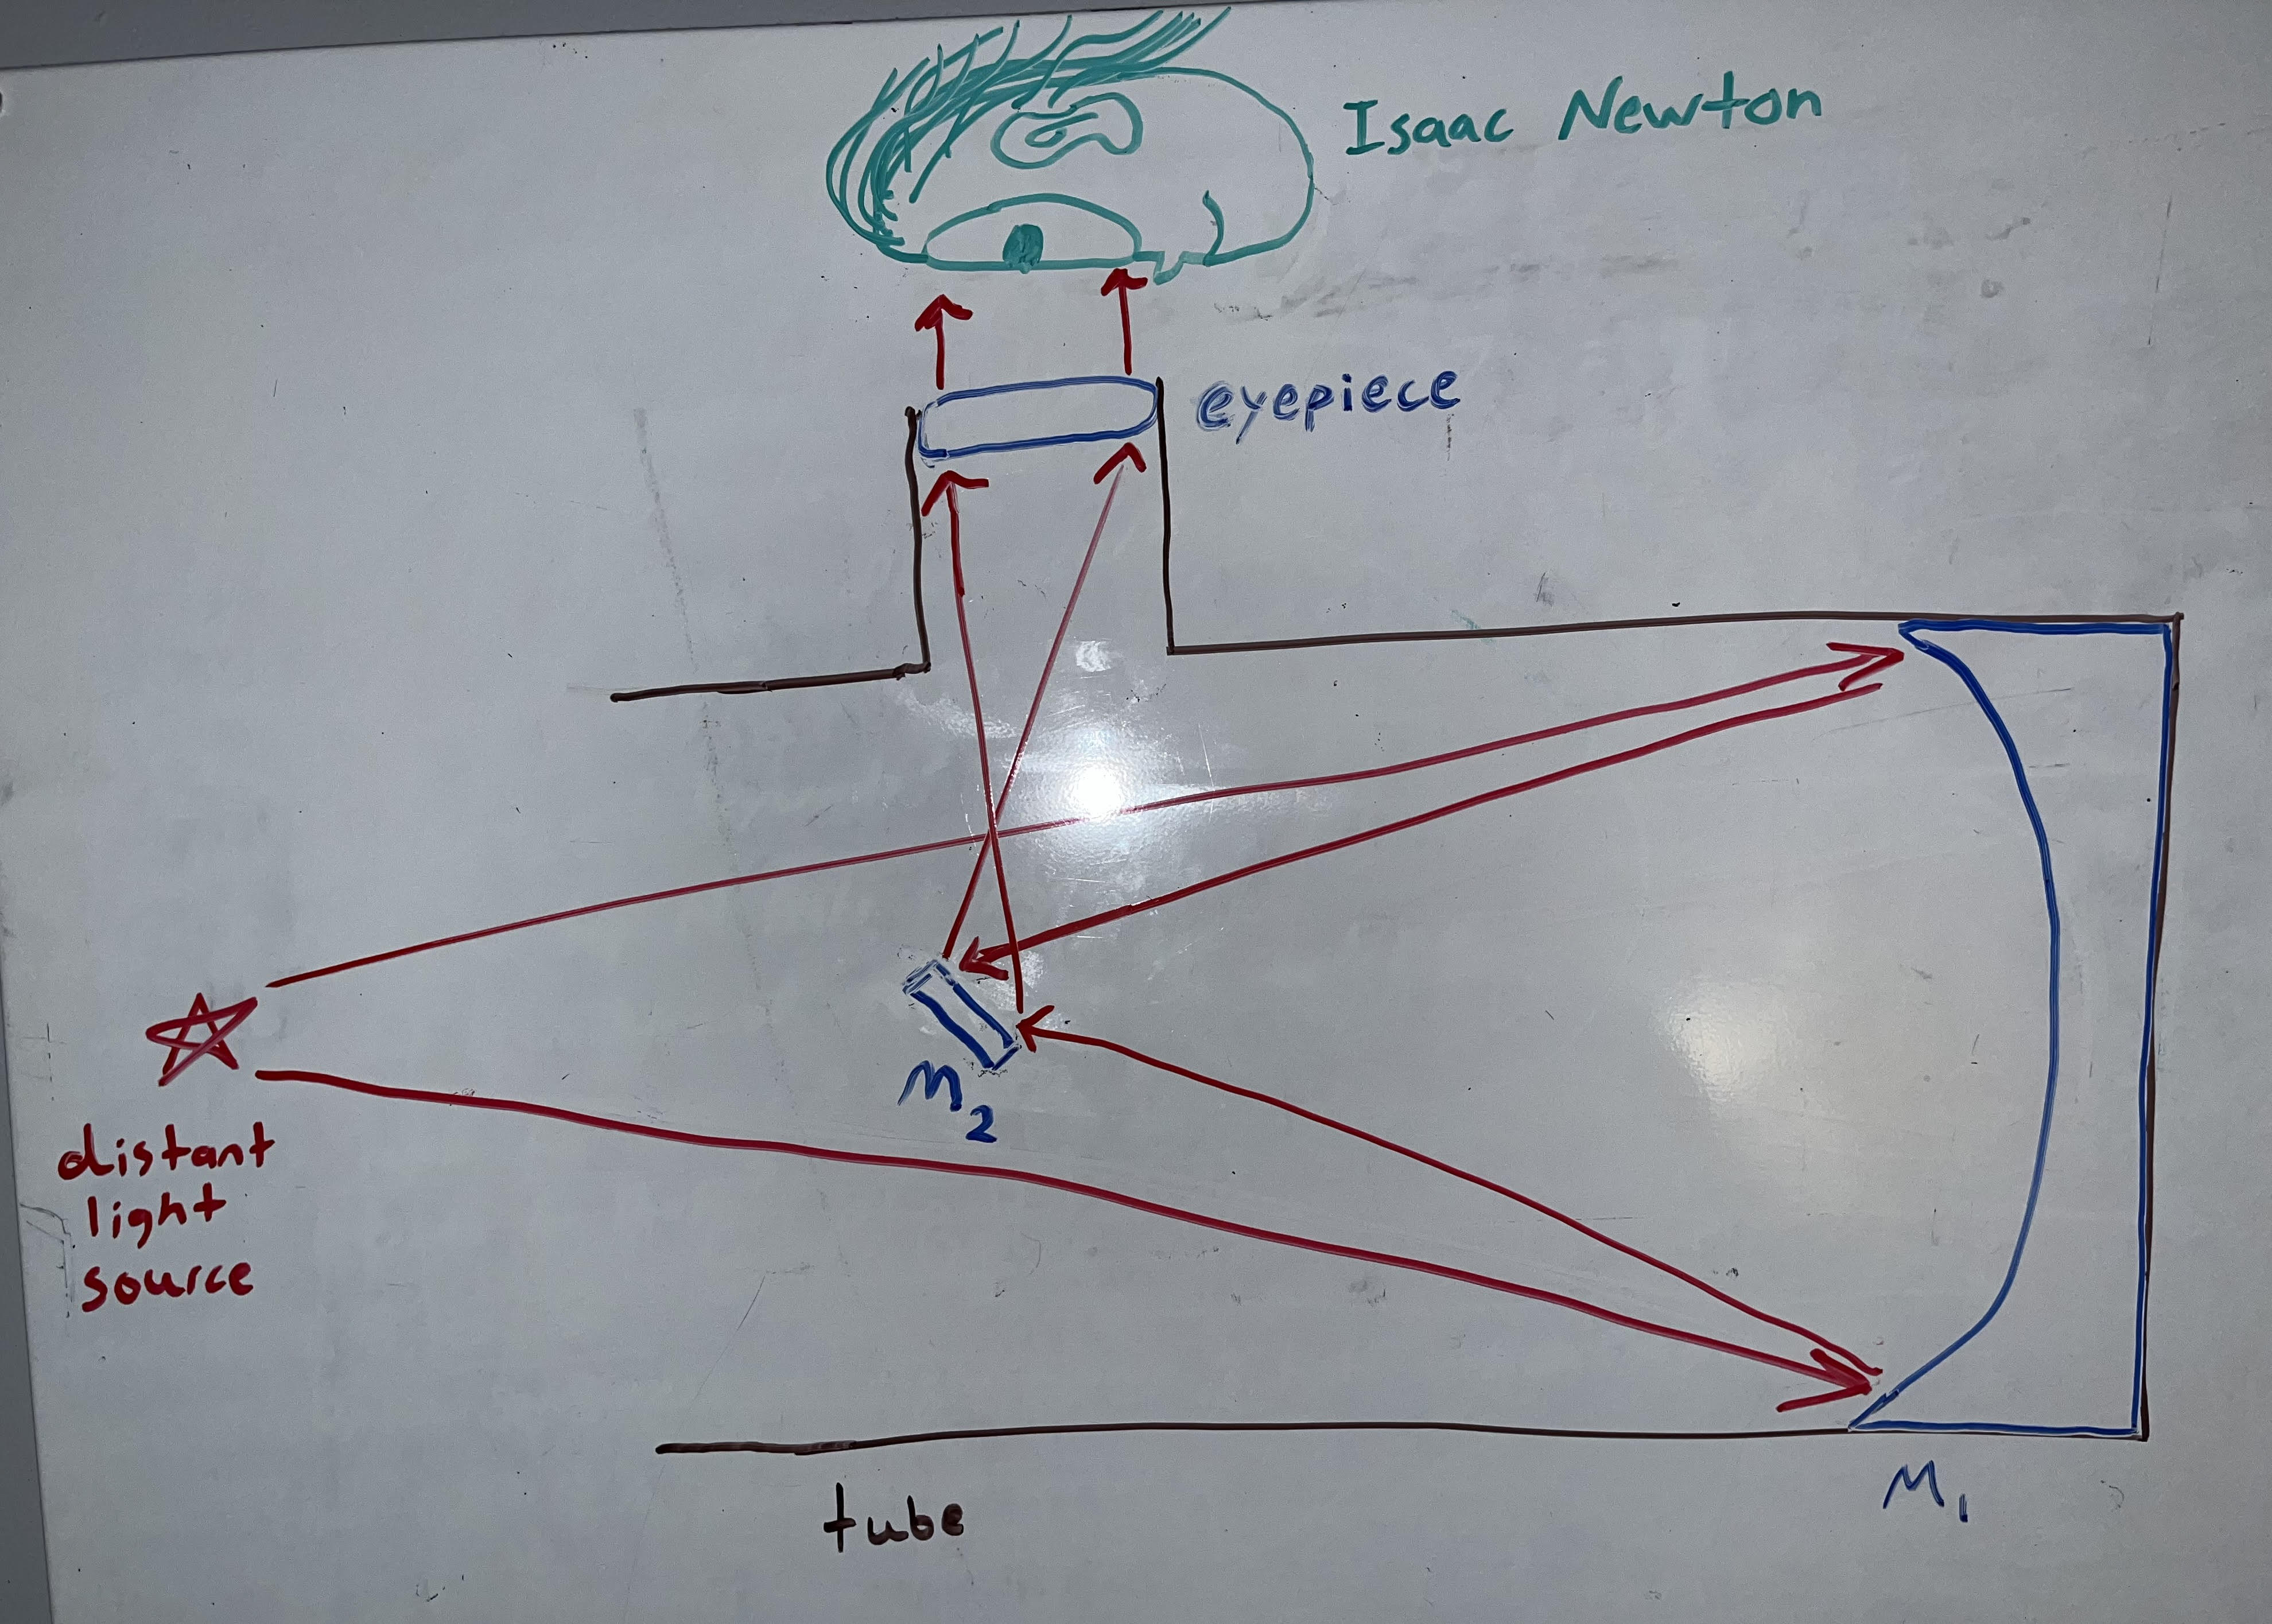 Isaac Newton
eyepiece
M₂
distant
light
source
M₁
tube